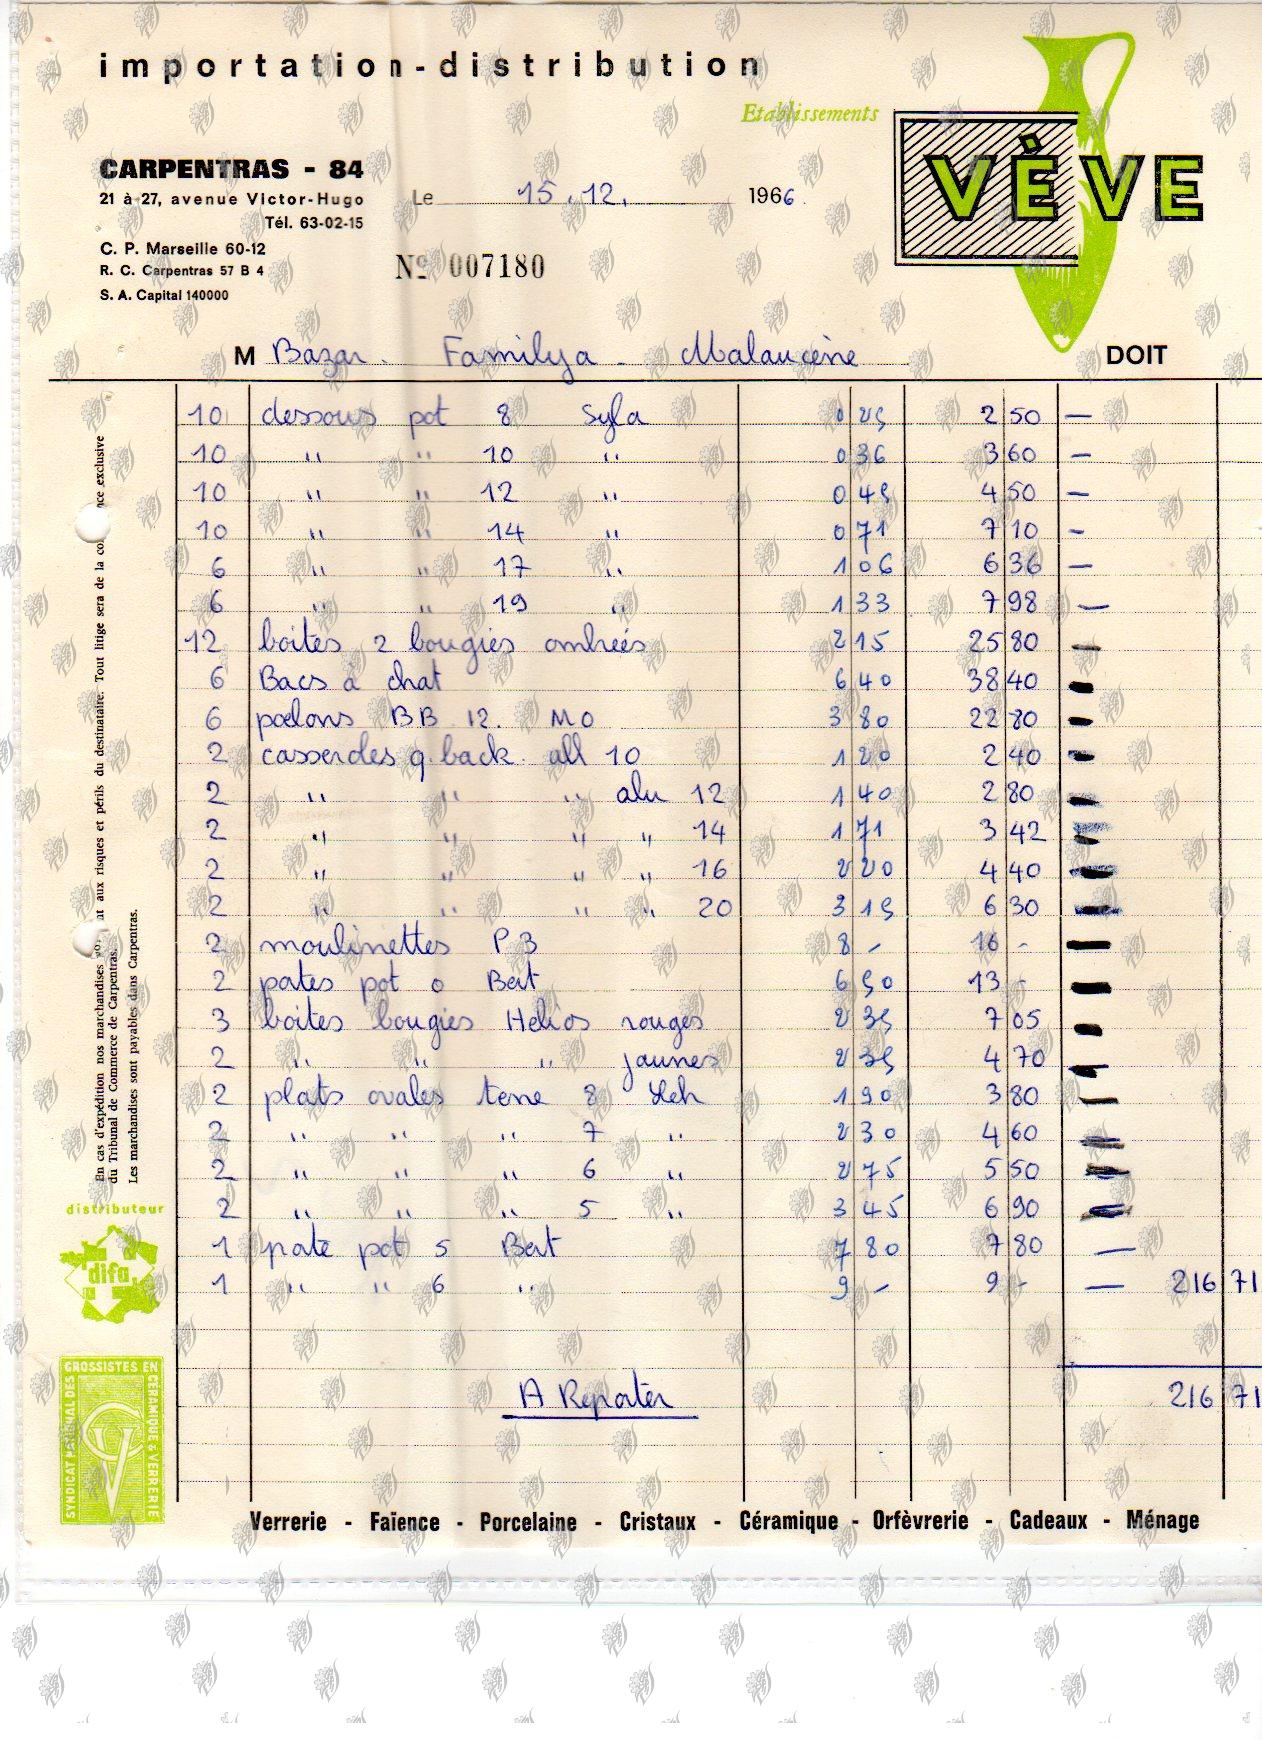 importation-distribution
Etablissements
VÈVE
CARPENTRAS - 84
21 à 27, avenue Victor-Hugo
Tél. 63-02-15
C. P. Marseille 60-12
R. C. Carpentras 57 B 4
S. A. Capital 140000
Le 15.12. 1966
Nº 007180
M Bazar. Familya - Malaucène DOIT
10 dessous pot 8 Syla 0 25 2 50 —
10 " " 10 " 0 36 3 60 —
10 " " 12 " 0 45 4 50 —
10 " " 14 " 0 71 7 10 -
6 " " 17 " 1 06 6 36 —
6 " " 19 " 1 33 7 98 —
12 boites 2 bougies ombrées 2 15 25 80 —
6 Bacs à chat 6 40 38 40 —
6 poelons BB 12. MO 3 80 22 80 —
2 casseroles q. back all 10 1 20 2 40 —
2 " " " alu 12 1 40 2 80 —
2 " " " " 14 1 71 3 42 —
2 " " " " 16 2 20 4 40 —
2 " " " " 20 3 15 6 30 —
2 moulinettes P3 8 - 16 - —
2 pates pot 0 Bert 6 50 13 - —
3 boites bougies Helios rouges 2 35 7 05 —
2 " " " jaunes 2 35 4 70 —
2 plats ovales terre 8 Leh 1 90 3 80 —
2 " " " 7 " 2 30 4 60 —
2 " " " 6 " 2 75 5 50 —
2 " " " 5 " 3 45 6 90 —
1 pate pot 5 Bert 7 80 7 80 —
1 " " 6 " 9 - 9 - — 216 71
A Reporter 216 71
En cas d'expédition nos marchandises aux risques et périls du destinataire. Tout litige sera de la exclusive
du Tribunal de Commerce de Carpentras.
Les marchandises sont payables dans Carpentras.
distributeur
difa
SYNDICAT NATIONAL DES GROSSISTES EN CÉRAMIQUE & VERRERIE
CV
Verrerie - Faïence - Porcelaine - Cristaux - Céramique - Orfèvrerie - Cadeaux - Ménage